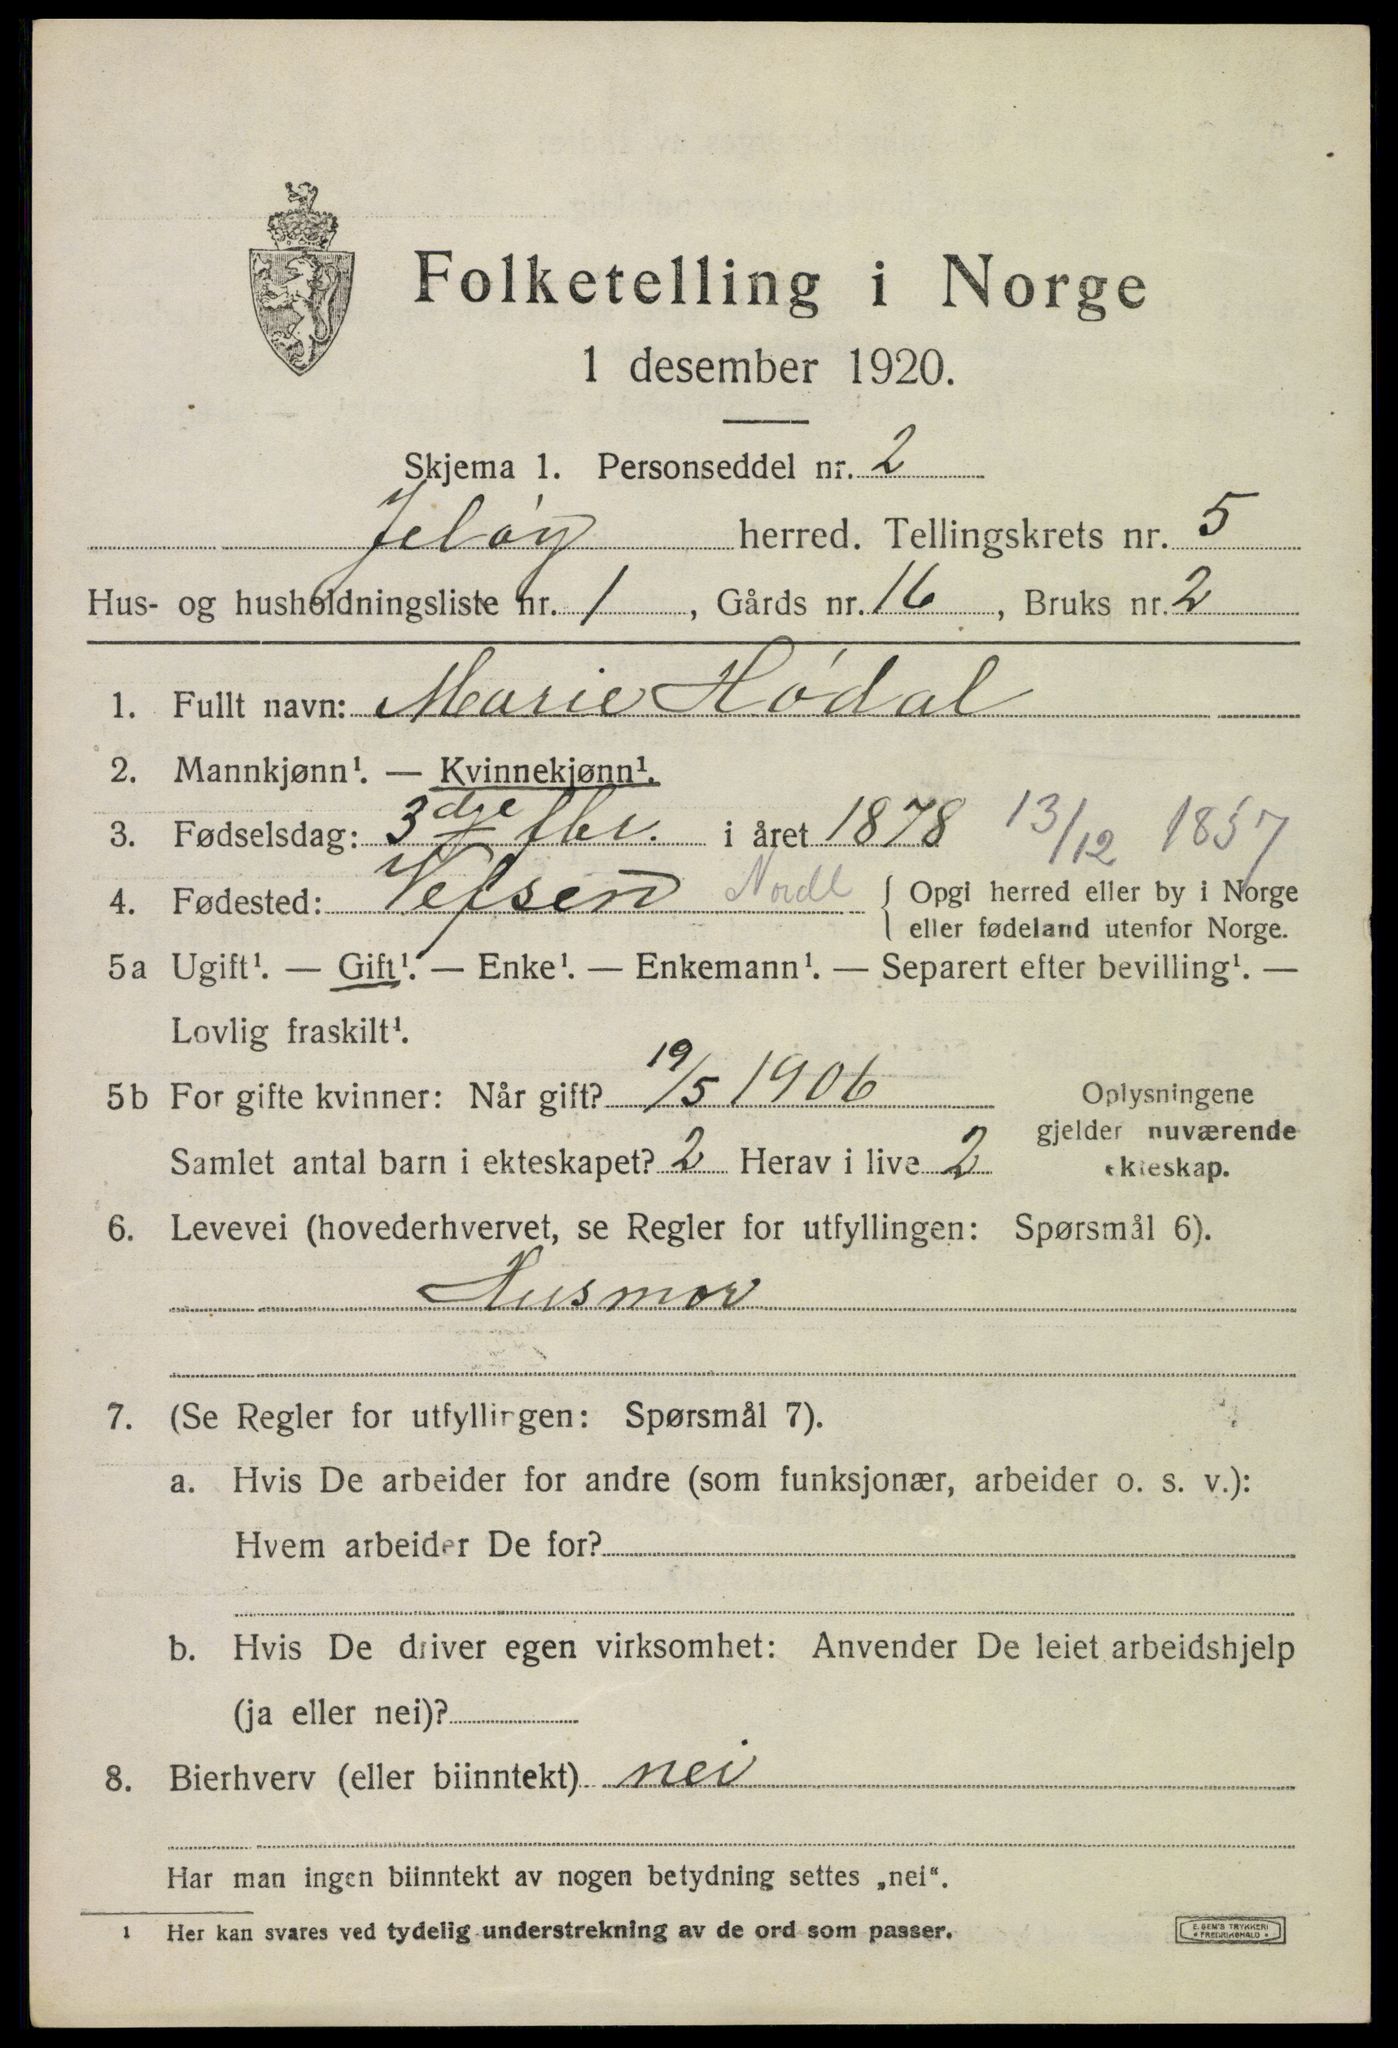 Folketelling i Norge
1 desember 1920.
Skjema 1. Personseddel nr. 2
Jeløy herred. Tellingskrets nr. 5
Hus- og husholdningsliste nr. 1, Gårds nr. 16, Bruks nr. 2
1. Fullt navn: Marie Hódal
2. Mannkjønn¹. — Kvinnekjønn¹.
3. Fødselsdag: 3dje fbr. i året 1878 13/12 1857
4. Fødested: Vefsen Nordl { Opgi herred eller by i Norge
eller fødeland utenfor Norge.
5a Ugift¹. — Gift¹. — Enke¹. — Enkemann¹. — Separert efter bevilling¹. —
Lovlig fraskilt¹.
5b For gifte kvinner: Når gift? 19/5 1906 Oplysningene
gjelder nuværende
Samlet antal barn i ekteskapet? 2 Herav i live 2 ekteskap.
6. Levevei (hovederhvervet, se Regler for utfyllingen: Spørsmål 6).
Husmor
7. (Se Regler for utfyllingen: Spørsmål 7).
a. Hvis De arbeider for andre (som funksjonær, arbeider o. s. v.):
Hvem arbeider De for?
b. Hvis De driver egen virksomhet: Anvender De leiet arbeidshjelp
(ja eller nei)?
8. Bierhverv (eller biinntekt) nei
Har man ingen biinntekt av nogen betydning settes „nei“.
1 Her kan svares ved tydelig understrekning av de ord som passer.
E. SEM'S TRYKKERI
FREDRIKSHALD